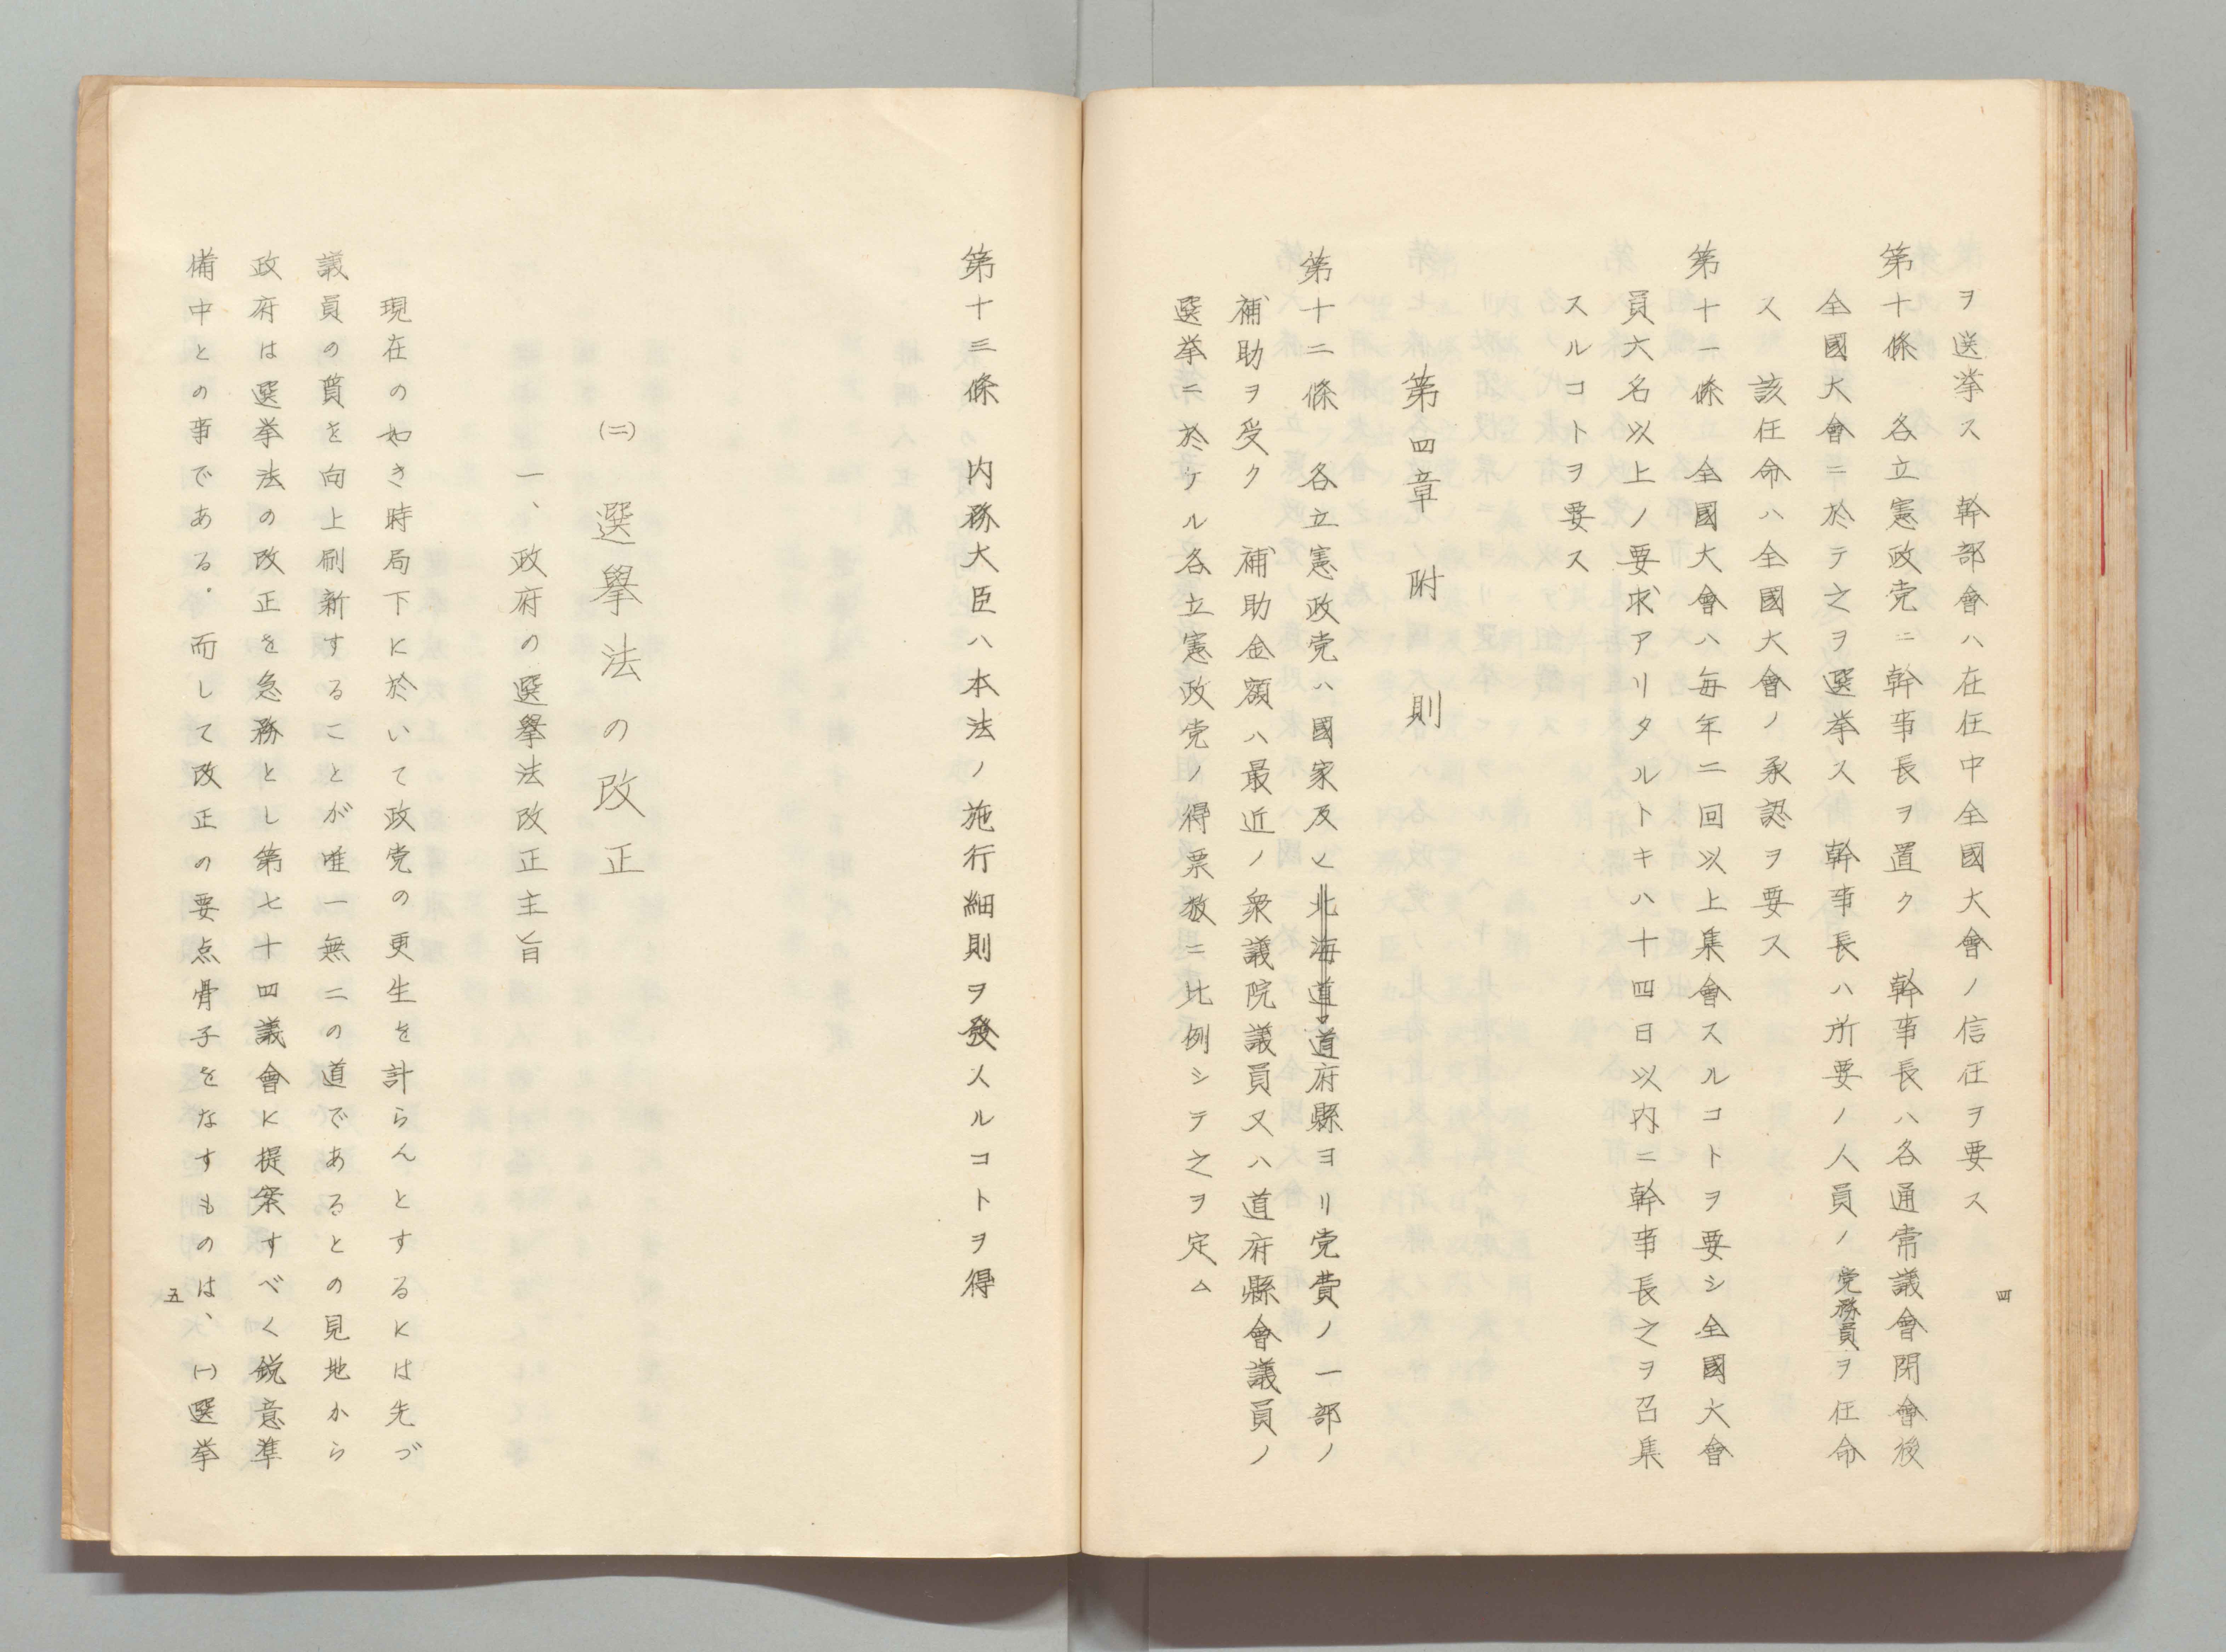 四
ヲ選挙ス 幹部會ハ在任中全國大會ノ信任ヲ要ス
第十條 各立憲政党ニ幹事長ヲ置ク 幹事長ハ各通常議會閉會後
全國大會ニ於テ之ヲ選挙ス 幹事長ハ所要ノ人員ノ党務員ヲ任命
ス 該任命ハ全國大會ノ承認ヲ要ス
第十一條 全國大會ハ毎年二回以上集會スルコトヲ要シ全國大會
員六名以上ノ要求アリタルトキハ十四日以内ニ幹事長之ヲ召集
スルコトヲ要ス
第四章 附則
第十二條 各立憲政党ハ國家及ヒ北海道、道府縣ヨリ党費ノ一部ノ
補助ヲ受ク 補助金額ハ最近ノ衆議院議員又ハ道府縣會議員ノ
選挙ニ於ケル各立憲政党ノ得票数ニ比例シテ之ヲ定ム
第十三條 内務大臣ハ本法ノ施行細則ヲ發スルコトヲ得
(二) 選擧法の改正
一、政府の選擧法改正主旨
現在の如き時局下に於いて政党の更生を計らんとするには先づ
議員の質を向上刷新することが唯一無二の道であるとの見地から
政府は選挙法の改正を急務とし第七十四議會に提案すべく鋭意準
備中との事である．而して改正の要点骨子をなすものは、(一)選挙
五